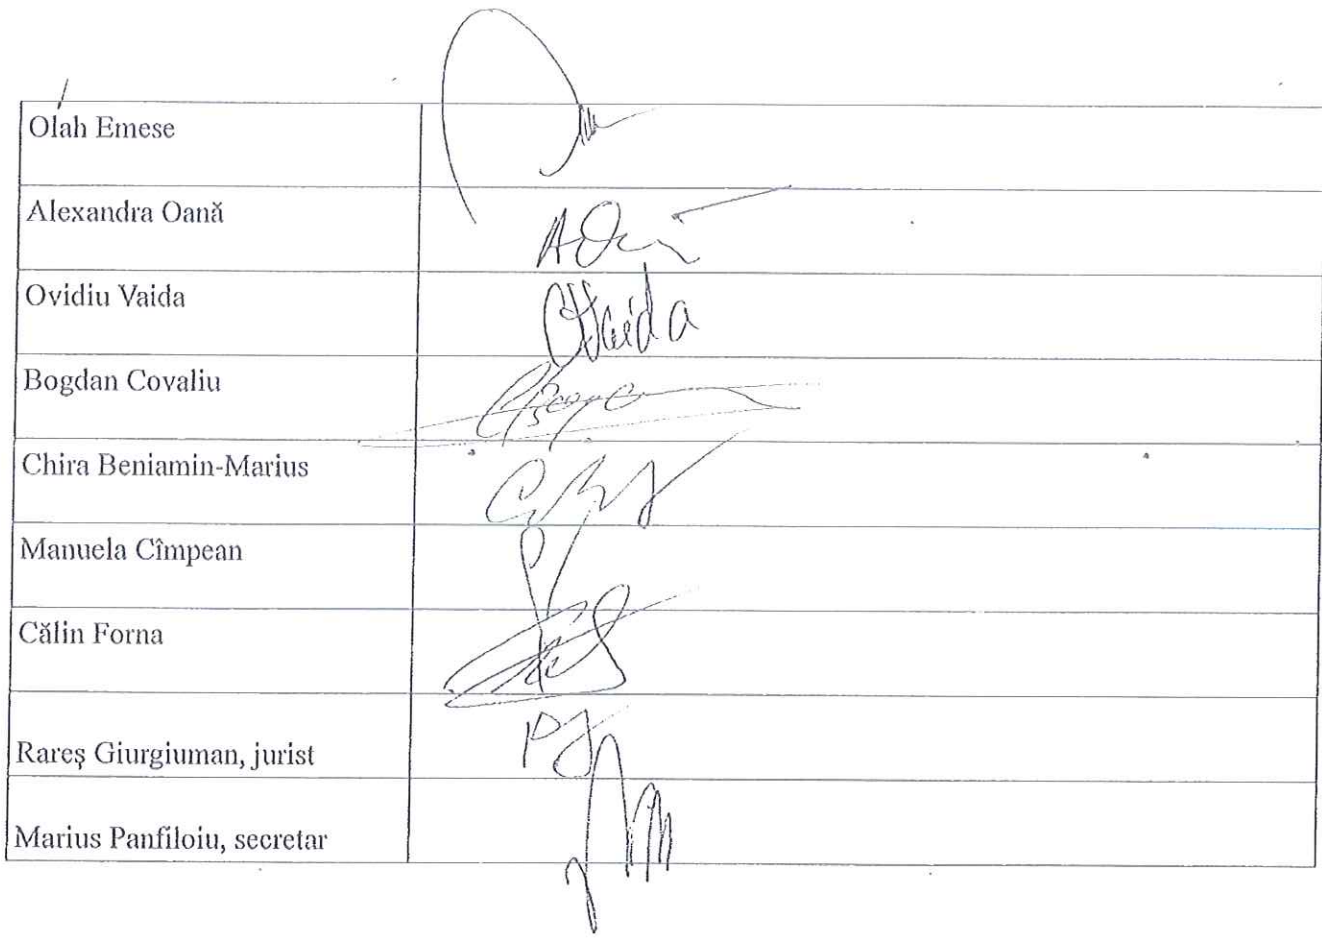 Olah Emese
Alexandra Oană
Ovidiu Vaida
Vaida
Bogdan Covaliu
Chira Beniamin-Marius
Manuela Cîmpean
Călin Forna
Rareș Giurgiuman, jurist
Marius Panfiloiu, secretar